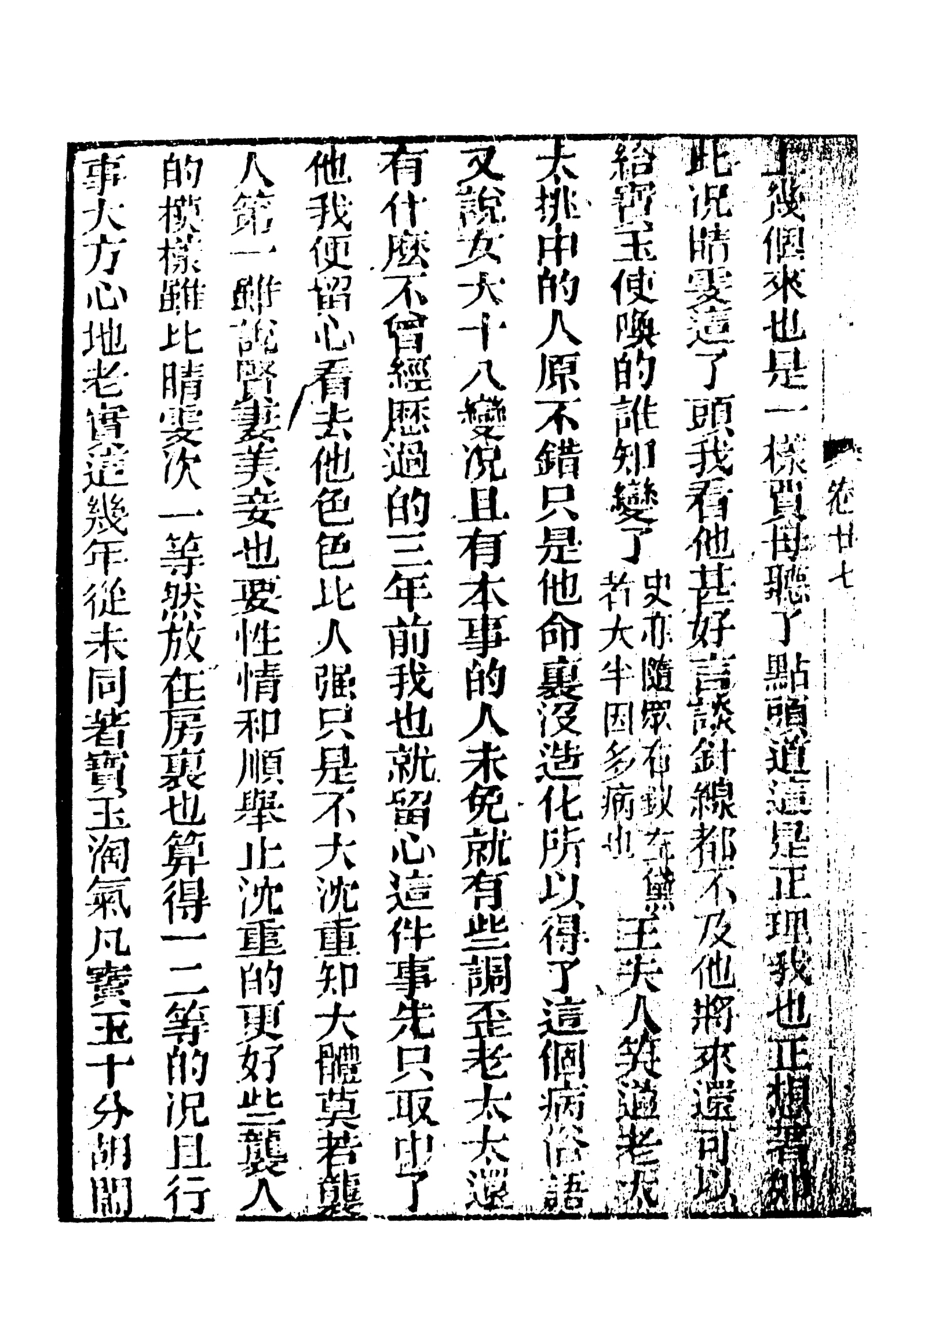 上幾個來也是一樣賈母聽了點頭道這是正理我也正想著如
此况晴雯這了頭我看他甚好言談針線都不及他將來還可以
給寶玉使喚的誰知變了
史亦隨眾有
黛
若大半因多病也
王夫人笑道老太
太挑中的人原不錯只是他命裏沒造化所以得了這個病俗語
又說女大十八變况且有本事的人未免就有些調歪老太太還
有什麽不曾經歷過的三年前我也就留心這件事先只取中了
他我便留心看去他色色比人强只是不大沈重知大體莫若襲
人第一雖說賢妻美妾也要性情和順舉止沈重的更好些襲人
的模樣雖比晴雯次一等然放在房裏也算得一二等的况且行
事大方心地老實這幾年從未同著寶玉淘氣凡寶玉十分胡鬧
卷廿七